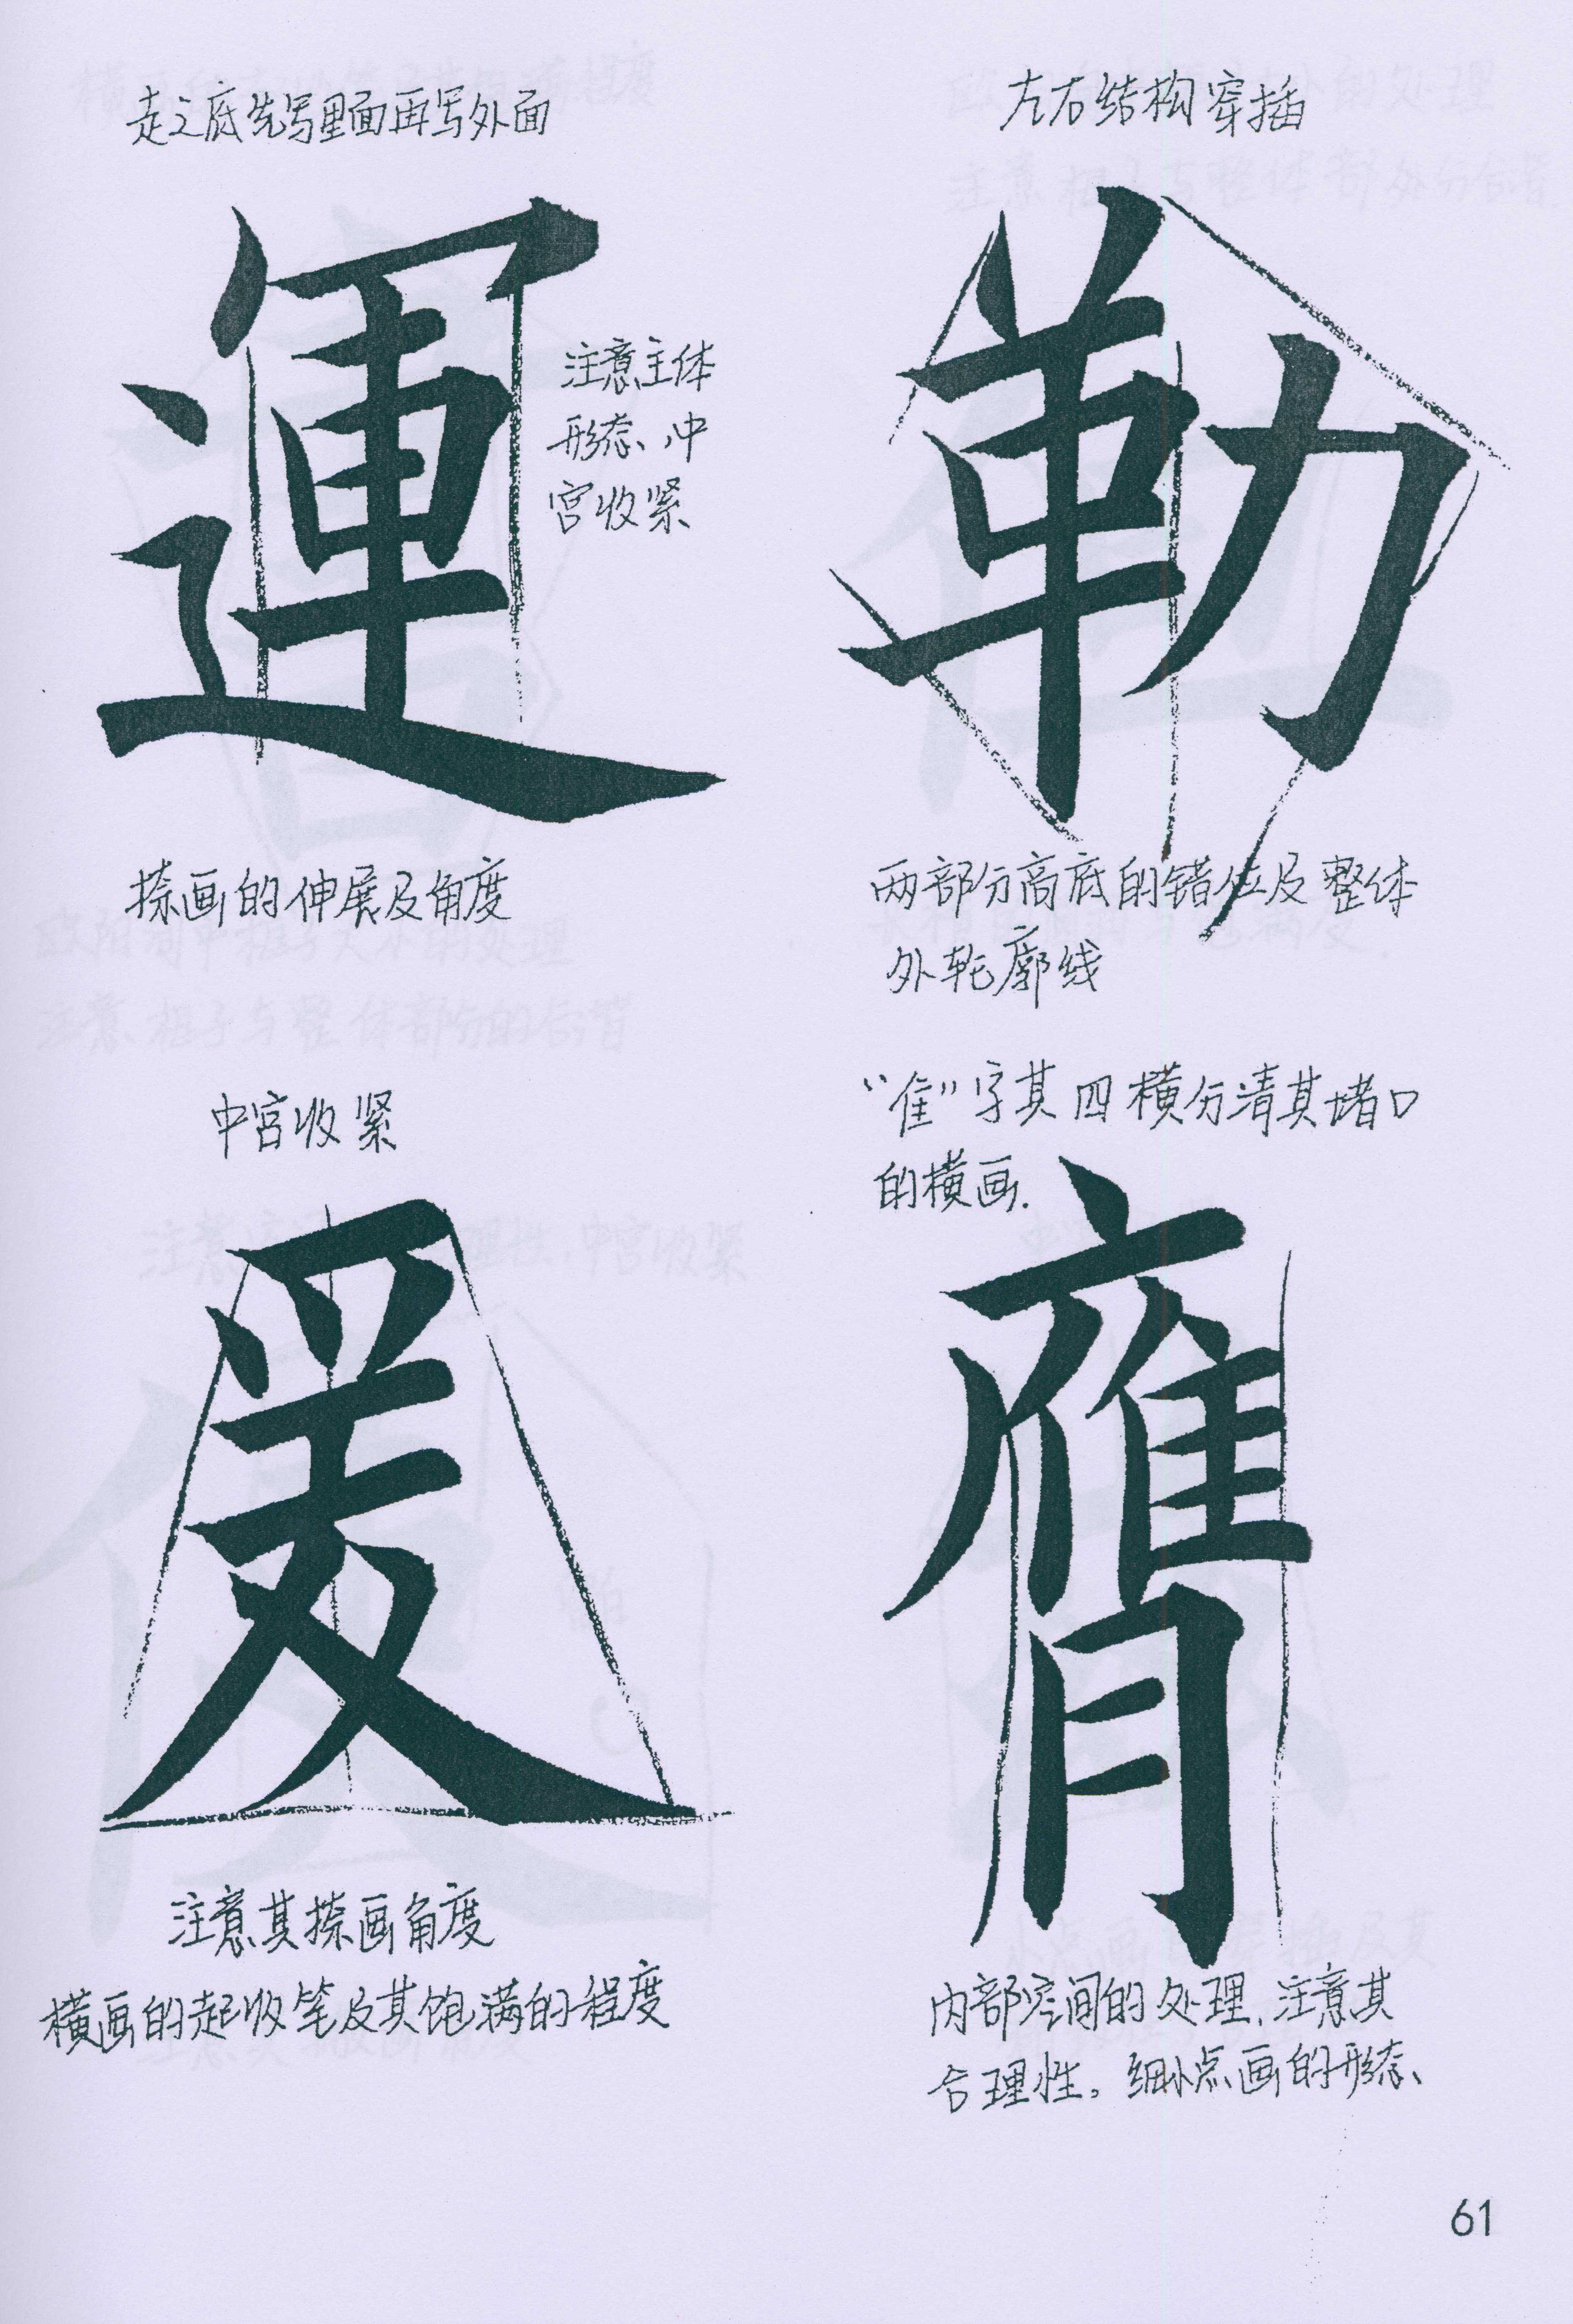 走之底先写里面再写外面
運
注意主体
形态、中
宫收紧
捺画的伸展及角度
左右结构穿插
勒
两部分高底的错位及整体
外轮廓线
中宫收紧
爰
注意其捺画角度
横画的起收笔及其饱满的程度
“隹”字其四横分清其堵口
的横画.
膺
内部空间的处理,注意其
合理性。细小点画的形态、
61